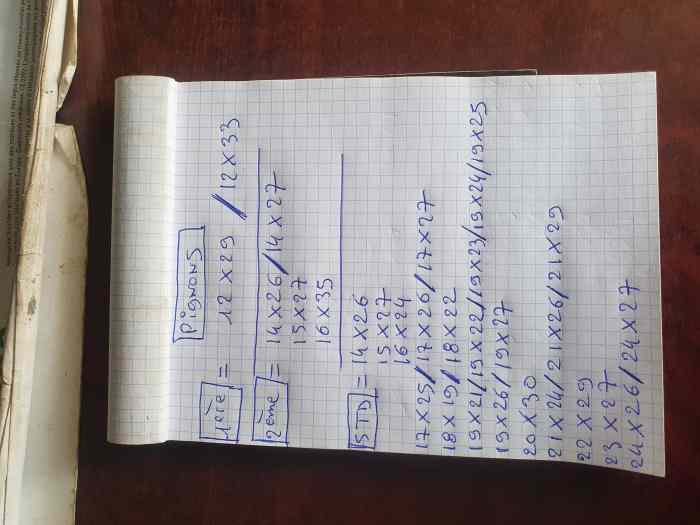 Pignons
1ere = 12x29 / 12x33
2ème = 14x26/14x27
15x27
16x35
STD = 14x26
15x27
16x24
17x25/17x26/17x27
18x19/18x22
19x21/19x22/19x23/19x24/19x25
19x26/19x27
20x30
21x24/21x26/21x29
22x29
23x27
24x26/24x27